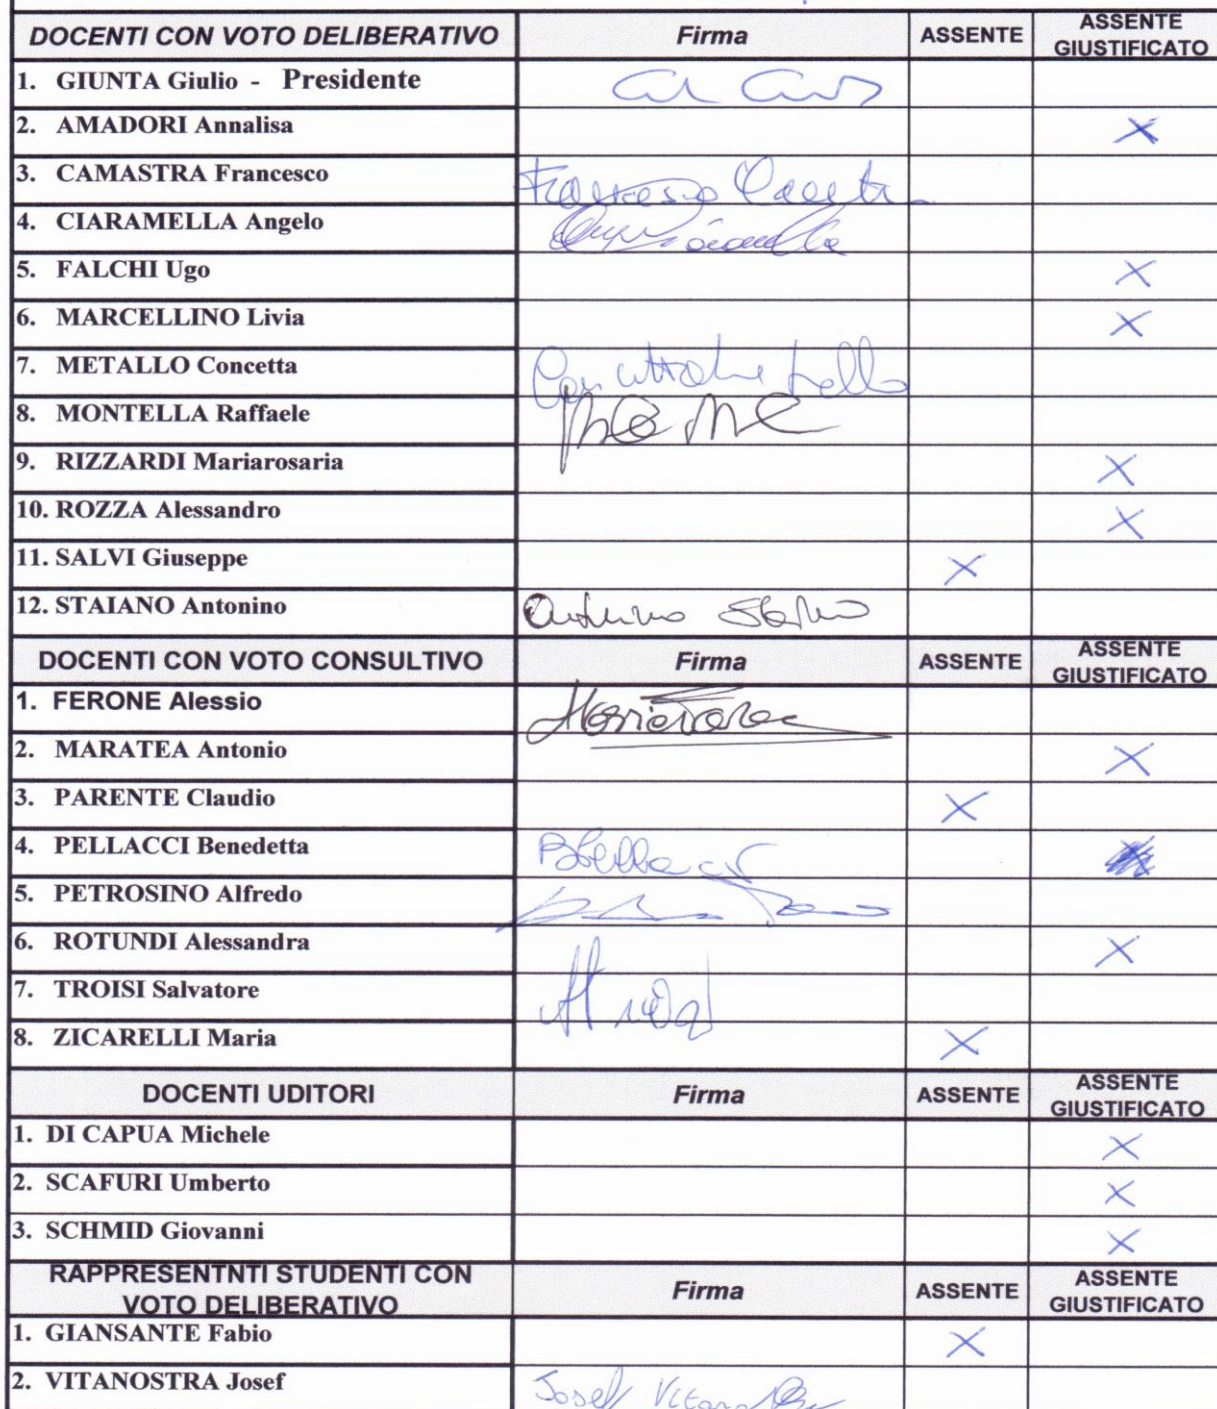 DOCENTI CON VOTO DELIBERATIVO Firma ASSENTE ASSENTE GIUSTIFICATO
1. GIUNTA Giulio - Presidente
2. AMADORI Annalisa X
3. CAMASTRA Francesco Francesco
4. CIARAMELLA Angelo
5. FALCHI Ugo X
6. MARCELLINO Livia X
7. METALLO Concetta
8. MONTELLA Raffaele
9. RIZZARDI Mariarosaria X
10. ROZZA Alessandro X
11. SALVI Giuseppe X
12. STAIANO Antonino
DOCENTI CON VOTO CONSULTIVO Firma ASSENTE ASSENTE GIUSTIFICATO
1. FERONE Alessio
2. MARATEA Antonio X
3. PARENTE Claudio X
4. PELLACCI Benedetta
5. PETROSINO Alfredo
6. ROTUNDI Alessandra X
7. TROISI Salvatore
8. ZICARELLI Maria X
DOCENTI UDITORI Firma ASSENTE ASSENTE GIUSTIFICATO
1. DI CAPUA Michele X
2. SCAFURI Umberto X
3. SCHMID Giovanni X
RAPPRESENTNTI STUDENTI CON VOTO DELIBERATIVO Firma ASSENTE ASSENTE GIUSTIFICATO
1. GIANSANTE Fabio X
2. VITANOSTRA Josef Josef